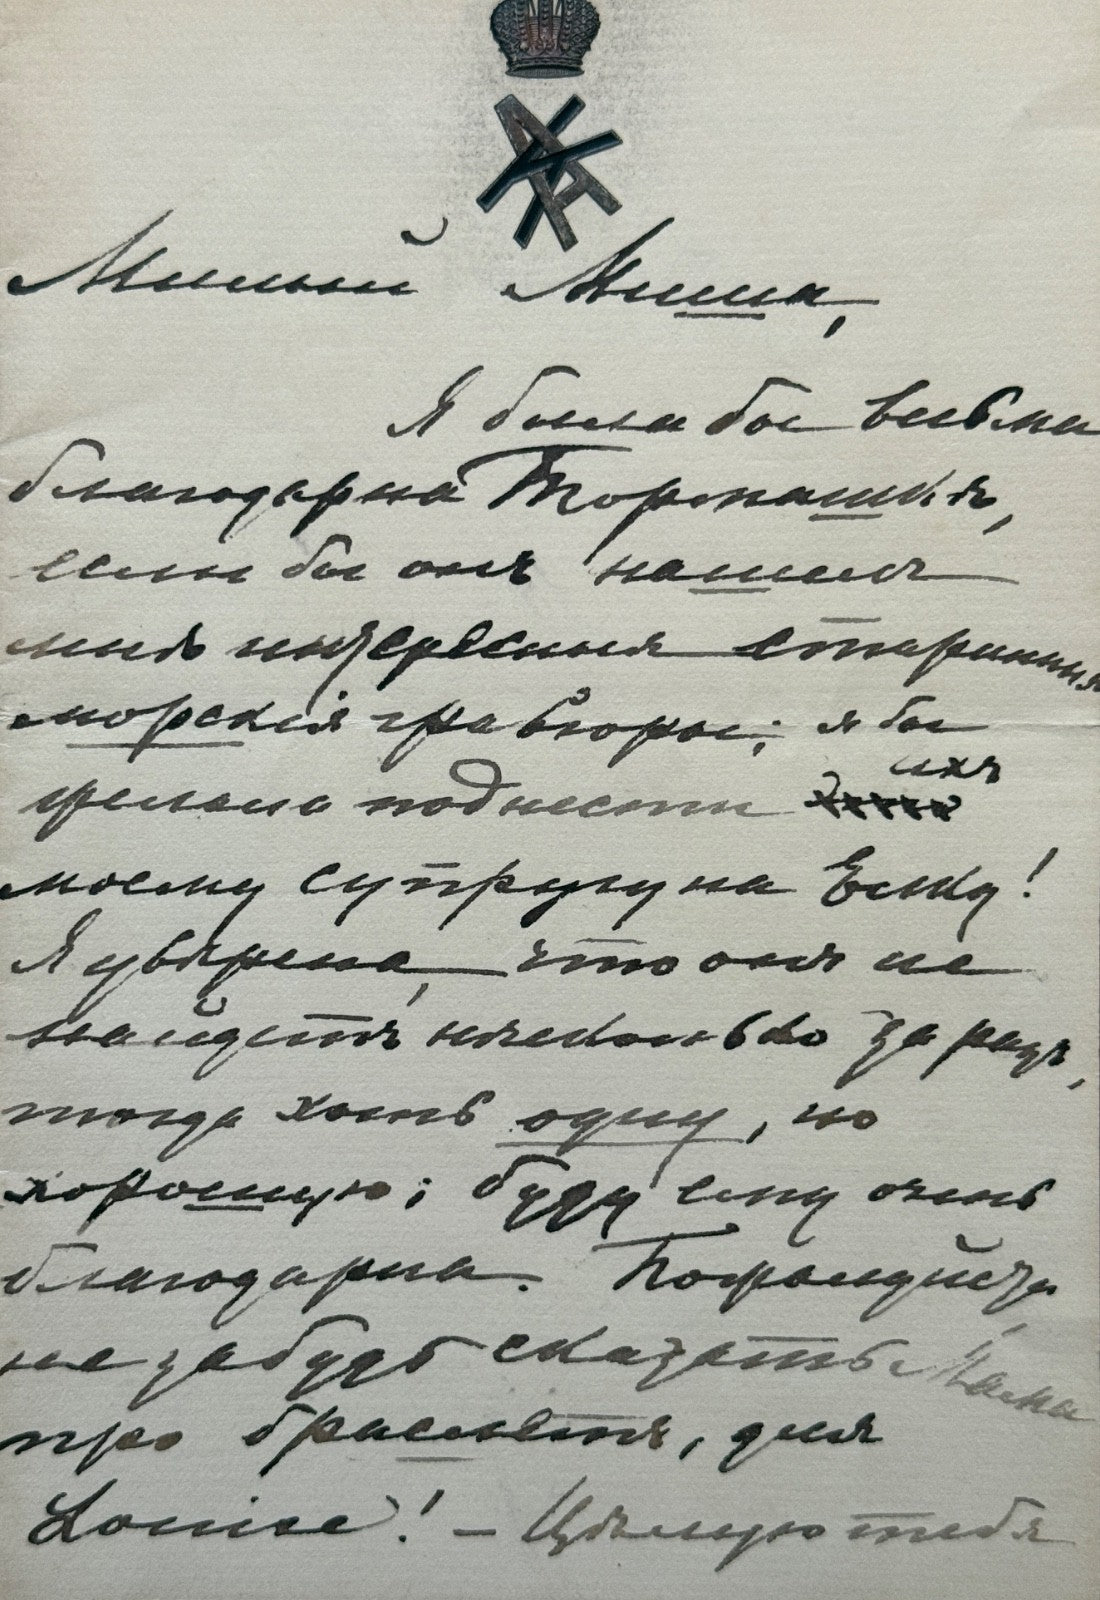 Милый Миша,
Я была бы весьма
благодарна Тормашкѣ,
если бы онъ нашелъ
мнѣ интересныя старинныя
морскія гравюры; я бы
желала поднести ихъ
моему супругу на Елку!
Я увѣрена, что онъ не
найдетъ нѣсколько за разъ,
тогда хоть одну, но
хорошую; буду ему очень
благодарна. Пожалуйста,
не забудь сказать Мама
про браслетъ, для
Louise! – Цѣлую тебя